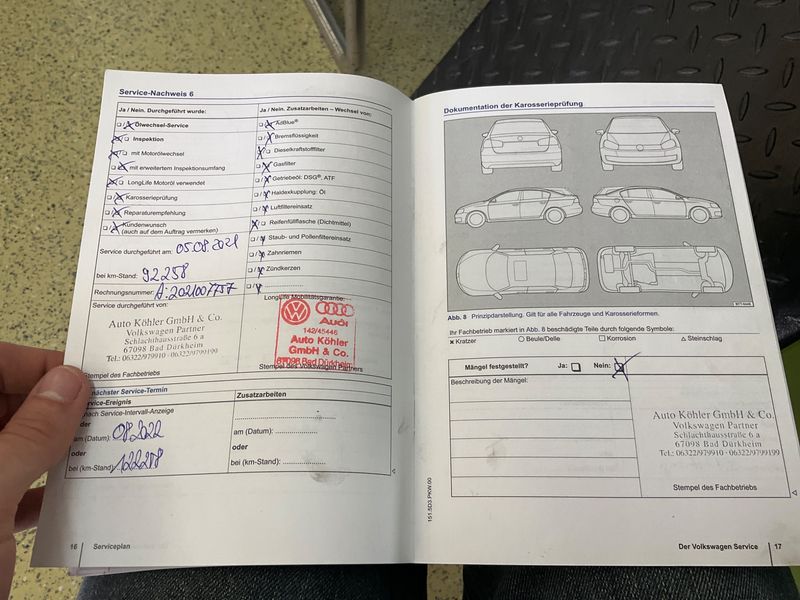 Service-Nachweis 6
Ja / Nein. Durchgeführt wurde:
Ölwechsel-Service
Inspektion
mit Motorölwechsel
mit erweitertem Inspektionsumfang
LongLife Motoröl verwendet
Karosserieprüfung
Reparaturempfehlung
Kundenwunsch
(auch auf dem Auftrag vermerken)
Service durchgeführt am: 05.08.2021
bei km-Stand: 92258
Rechnungsnummer: A:2021007757
Service durchgeführt von:
Auto Köhler GmbH & Co.
Volkswagen Partner
Schlachthausstraße 6 a
67098 Bad Dürkheim
Tel.: 06322/979910 · 06322/9799199
Stempel des Fachbetriebs
Ja / Nein. Zusatzarbeiten – Wechsel von:
AdBlue®
Bremsflüssigkeit
Dieselkraftstofffilter
Gasfilter
Getriebeöl: DSG®, ATF
Haldexkupplung: Öl
Luftfiltereinsatz
Reifenfüllflasche (Dichtmittel)
Staub- und Pollenfiltereinsatz
Zahnriemen
Zündkerzen
LongLife Mobilitätsgarantie:
Audi
142/45446
Auto Köhler
GmbH & Co.
67098 Bad Dürkheim
Stempel des Volkswagen Partners
nächster Service-Termin
Service-Ereignis
nach Service-Intervall-Anzeige
oder
am (Datum): 08.2022
oder
bei (km-Stand): 122258
Zusatzarbeiten
am (Datum):
oder
bei (km-Stand):
16 Serviceplan
Dokumentation der Karosserieprüfung
Abb. 8 Prinzipdarstellung. Gilt für alle Fahrzeuge und Karosserieformen.
Ihr Fachbetrieb markiert in Abb. 8 beschädigte Teile durch folgende Symbole:
x Kratzer ○ Beule/Delle □ Korrosion △ Steinschlag
Mängel festgestellt? Ja: Nein:
Beschreibung der Mängel:
Auto Köhler GmbH & Co.
Volkswagen Partner
Schlachthausstraße 6 a
67098 Bad Dürkheim
Tel.: 06322/979910 · 06322/9799199
Stempel des Fachbetriebs
151.5D3.PKW.00
Der Volkswagen Service 17